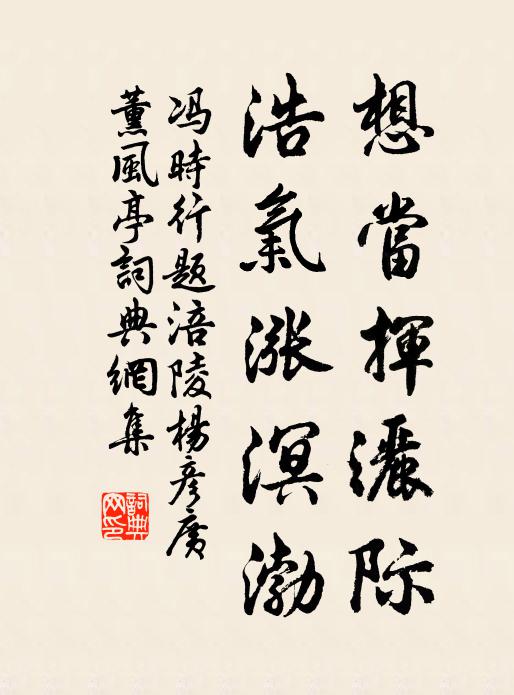 想當揮灑际
浩氣漲溟渤
冯時行题涪陵楊彦廣
薰風亭詞典網集
詞典
网印